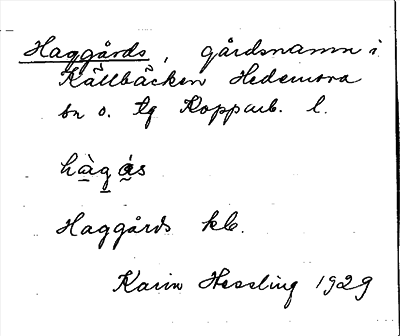 Haggårds, gårdsnamn i
Källbäcken Hedemora
sn o. tg Kopparb. l.
hàgás
Haggårds kb.
Karin Hessling 1929